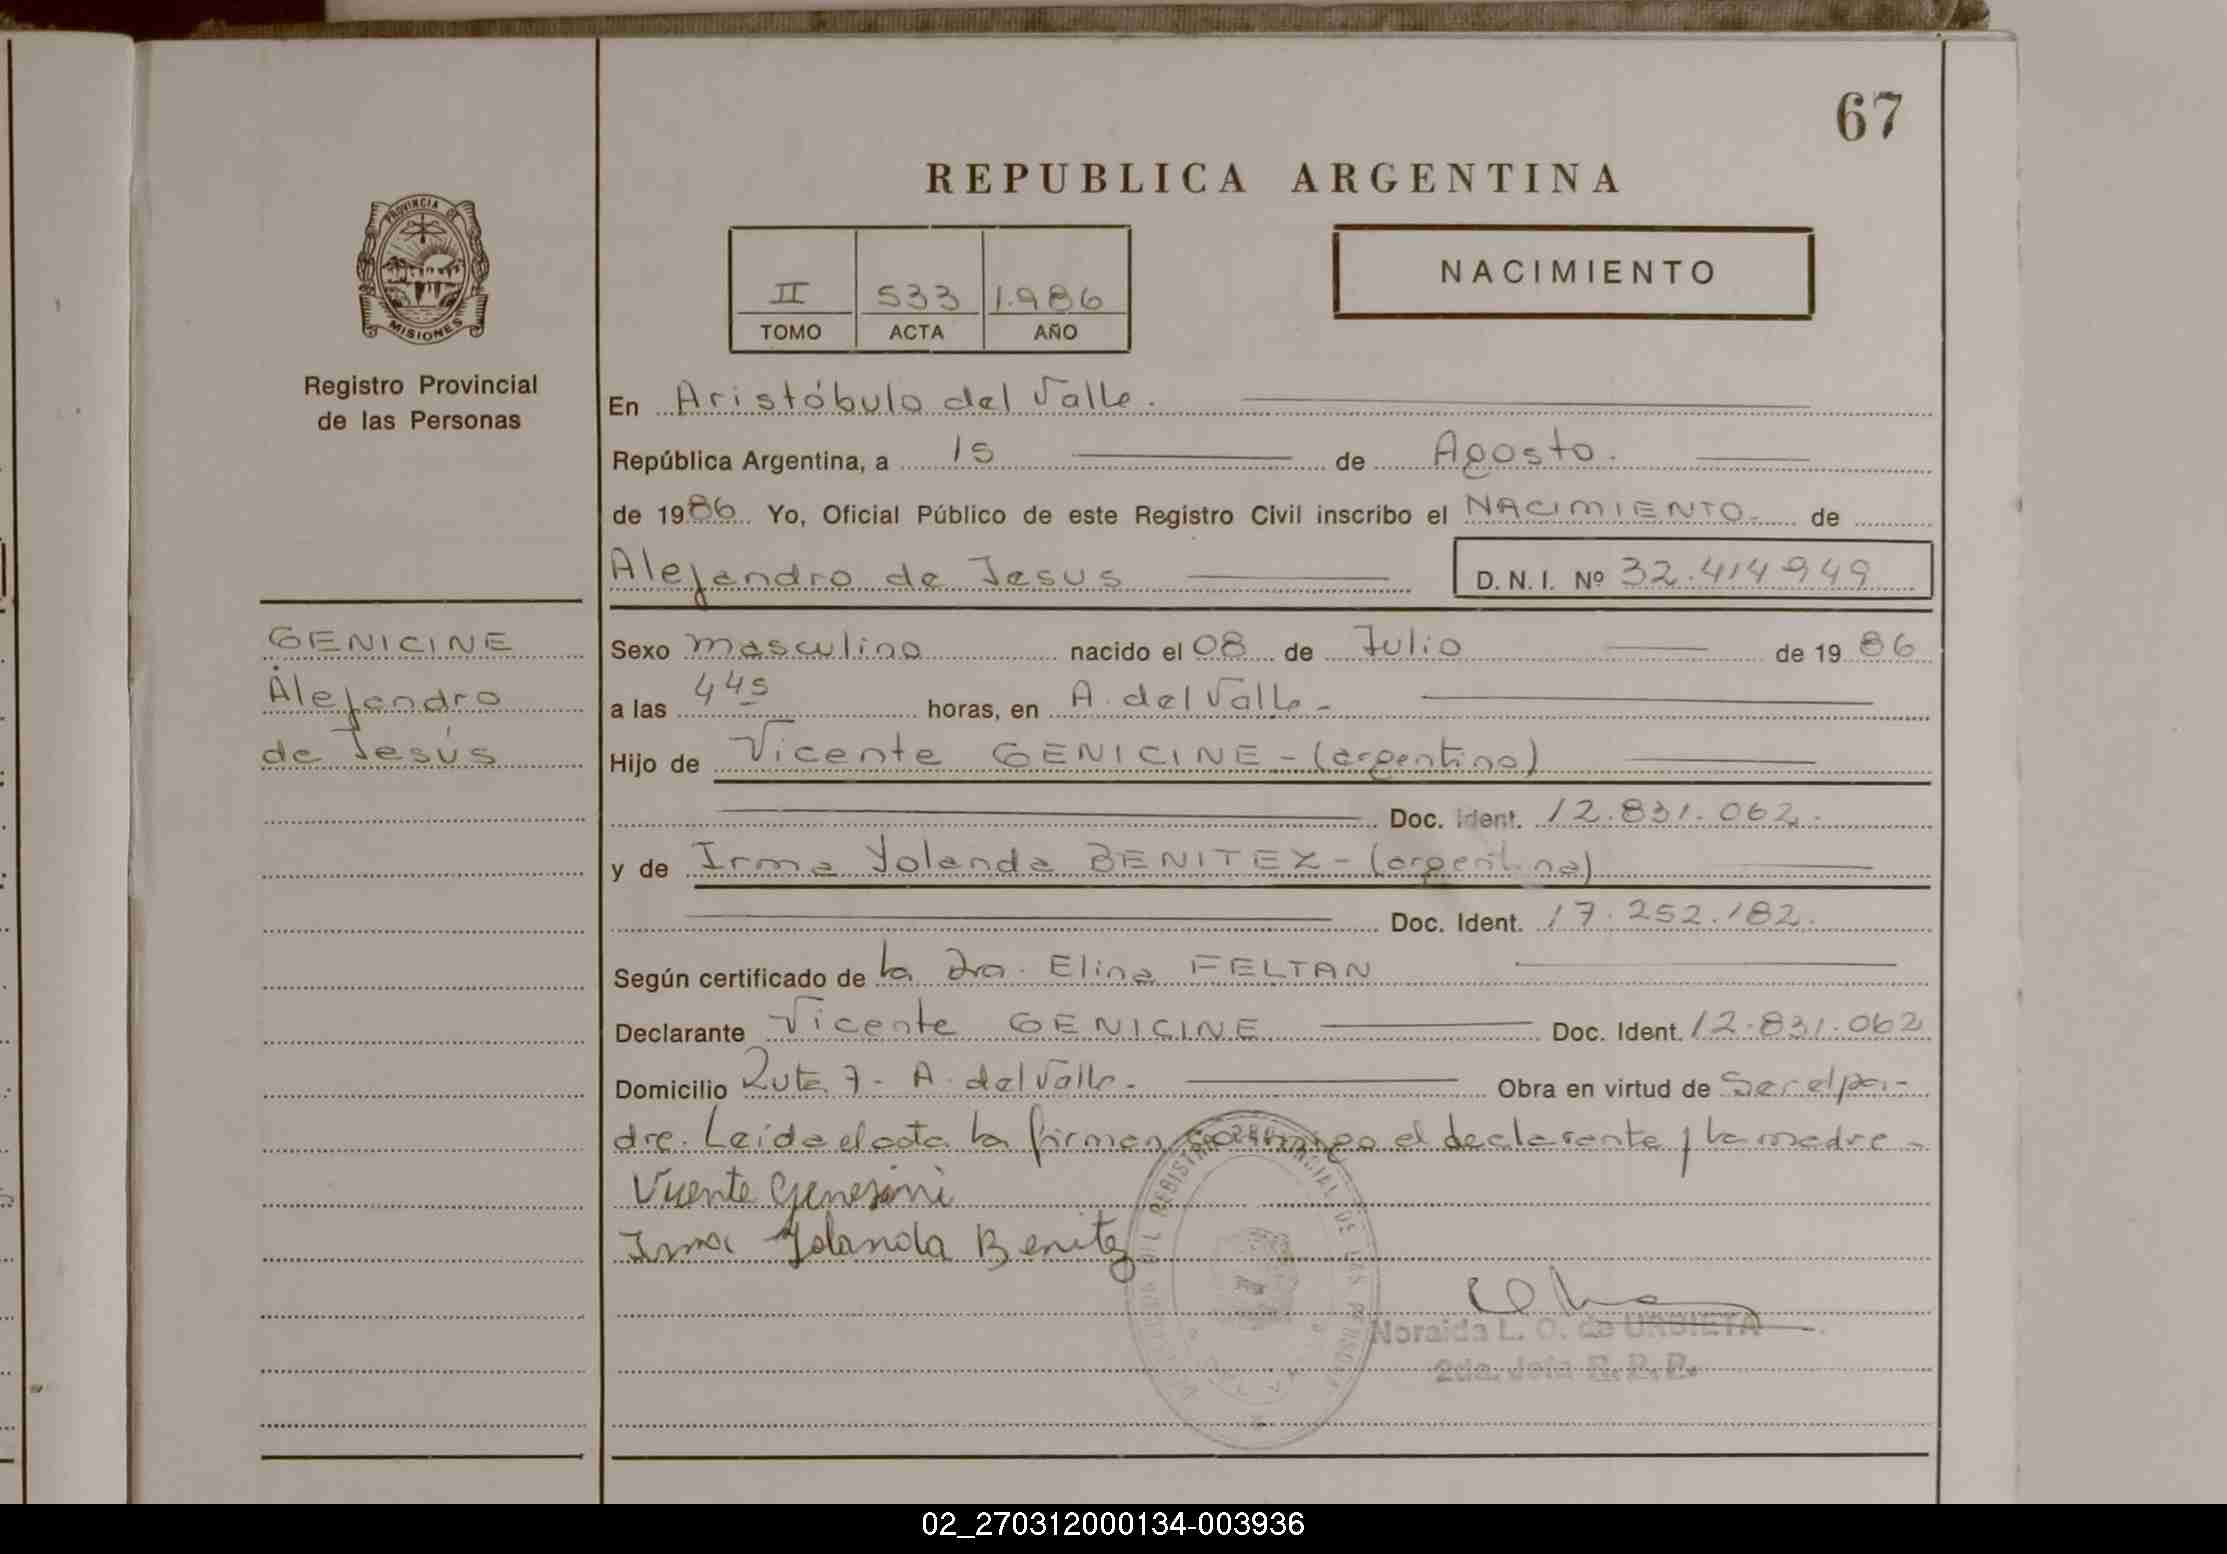 67
REPUBLICA ARGENTINA
PROVINCIA DE
MISIONES
Registro Provincial
de las Personas
II 533 1.986
TOMO ACTA AÑO
NACIMIENTO
En Aristóbulo del Valle.
República Argentina, a 15 de Agosto.
de 1986 Yo, Oficial Público de este Registro Civil inscribo el NACIMIENTO- de
Alejandro de Jesus D. N. I. Nº 32.414949
GENICINE
Alejandro
de Jesús
Sexo masculino nacido el 08 de Julio de 19 86
a las 445 horas, en A. del Valle-
Hijo de Vicente GENICINE - (argentino)
Doc. Ident. 12.831.062.
y de Irma Yolanda BENITEZ - (argentina)
Doc. Ident. 17.252.182.
Según certificado de la Dra. Elina FELTAN
Declarante Vicente GENICINE Doc. Ident. 12.831.062
Domicilio Ruta 7 - A. del Valle. Obra en virtud de Ser el pa-
dre. Leída el acta la firman conmigo el declarante y la madre-
Vicente Genesini
Irma Yolanda Benitez
Noraida L. O. de URBIETA
2da. Jefa R. P. P.
02_270312000134-003936